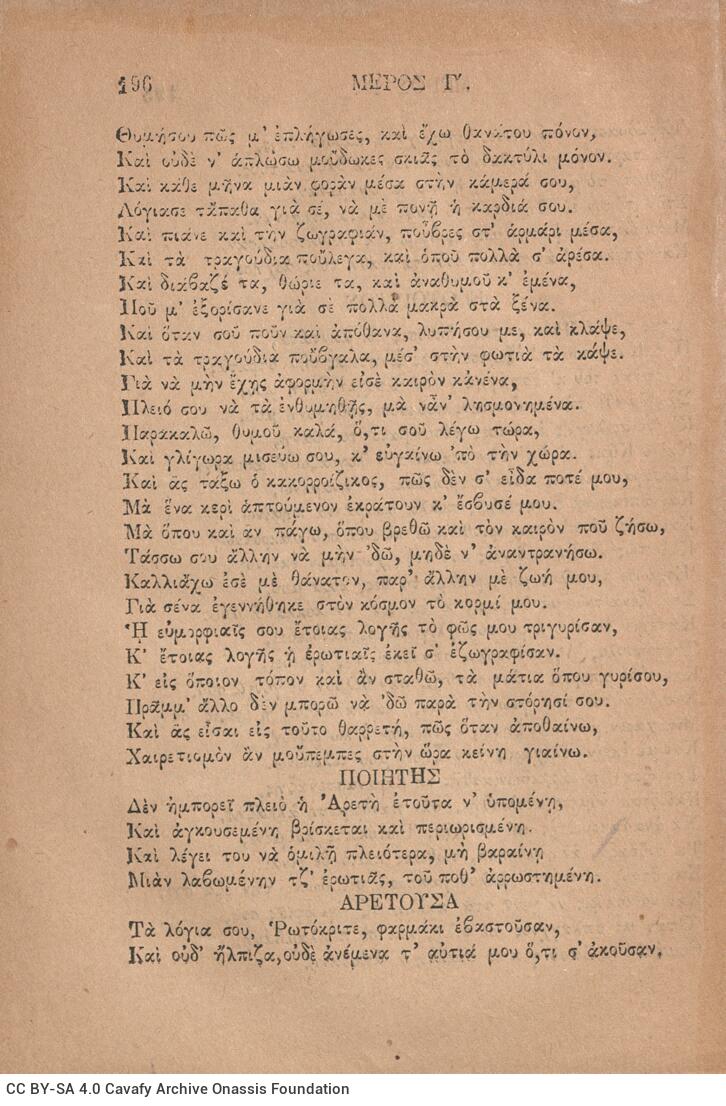 196 ΜΕΡΟΣ Γ'.
Θυμήσου πῶς μ' ἐπλήγωσες, καὶ ἔχω θανάτου πόνον,
Καὶ οὐδὲ ν' ἁπλώσω μοὔδωκες σκιᾶς τὸ δακτύλι μόνον.
Καὶ κάθε μῆνα μιὰν φορὰν μέσα στὴν κάμερά σου,
Λόγιασε τἄπαθα γιὰ σὲ, νὰ μὲ πονῇ ἡ καρδιά σου.
Καὶ πιάνε καὶ τὴν ζωγραφιὰν, ποὖβρες στ' ἀρμάρι μέσα,
Καὶ τὰ τραγούδια ποὔλεγα, καὶ ὁποῦ πολλὰ σ' ἀρέσα.
Καὶ διάβαζέ τα, θώριε τα, καὶ ἀναθυμοῦ κ' ἐμένα,
Ποῦ μ' ἐξορίσανε γιὰ σὲ πολλὰ μακρὰ στὰ ξένα.
Καὶ ὅταν σοῦ ποῦν καὶ ἀπόθανα, λυπήσου με, καὶ κλάψε,
Καὶ τὰ τραγούδια ποὔβγαλα, μέσ' στὴν φωτιὰ τὰ κάψε.
Γιὰ νὰ μὴν ἔχῃς ἀφορμὴν εἰσὲ καιρὸν κἀνένα,
Πλειό σου νὰ τὰ ἐνθυμηθῇς, μὰ νἆν' λησμονημένα.
Παρακαλῶ, θυμοῦ καλά, ὅ,τι σοῦ λέγω τώρα,
Καὶ γλίγωρα μισεύω σου, κ' εὐγαίνω 'πὸ τὴν χώρα.
Καὶ ἂς τάξω ὁ κακορροίζικος, πῶς δὲν σ' εἶδα ποτέ μου,
Μὰ ἕνα κερὶ ἁπτούμενον ἐκράτουν κ' ἔσβυσέ μου.
Μὰ ὅπου καὶ αν πάγω, ὅπου βρεθῶ καὶ τὸν καιρὸν ποῦ ζήσω,
Τάσσω σου ἄλλην νὰ μὴν 'δῶ, μηδὲ ν' ἀναντρανήσω.
Καλλιάχω ἐσὲ μὲ θάνατον, παρ' ἄλλην μὲ ζωή μου,
Γιὰ σένα ἐγεννήθηκε στὸν κόσμον τὸ κορμί μου.
Ἡ εὐμορφιαῖς σου ἔτοιας λογῆς τὸ φῶς μου τριγυρίσαν,
Κ' ἔτοιας λογῆς ἡ ἐρωτιαῖς ἐκεῖ σ' ἐζωγραφίσαν.
Κ' εἰς ὅποιον τόπον καὶ ἂν σταθῶ, τὰ μάτια ὅπου γυρίσου,
Πρᾶμμ' ἄλλο δὲν μπορῶ νὰ 'δῶ παρὰ τὴν στόρησί σου.
Καὶ ἂς εἶσαι εἰς τοῦτο θαρρετή, πῶς ὅταν ἀποθαίνω,
Χαιρετισμὸν ἂν μοὔπεμπες στὴν ὥρα κείνη γιαίνω.
ΠΟΙΗΤΗΣ
Δὲν ἠμπορεῖ πλειὸ ἡ Ἀρετὴ ἐτοῦτα ν' ὑπομένῃ,
Καὶ ἀγκουσεμένη βρίσκεται καὶ περιωρισμένη.
Καὶ λέγει του νὰ ὁμιλῇ πλειότερα, μὴ βαραίνῃ
Μιὰν λαβωμένην τζ' ἐρωτιᾶς, τοῦ ποθ' ἀρρωστημένη.
ΑΡΕΤΟΥΣΑ
Τὰ λόγια σου, Ῥωτόκριτε, φαρμάκι ἐβαστοῦσαν,
Καὶ οὐδ' ἤλπιζα, οὐδὲ ἀνέμενα τ' αὐτιά μου ὅ,τι σ' ἀκοῦσαν.
CC BY-SA 4.0 Cavafy Archive Onassis Foundation